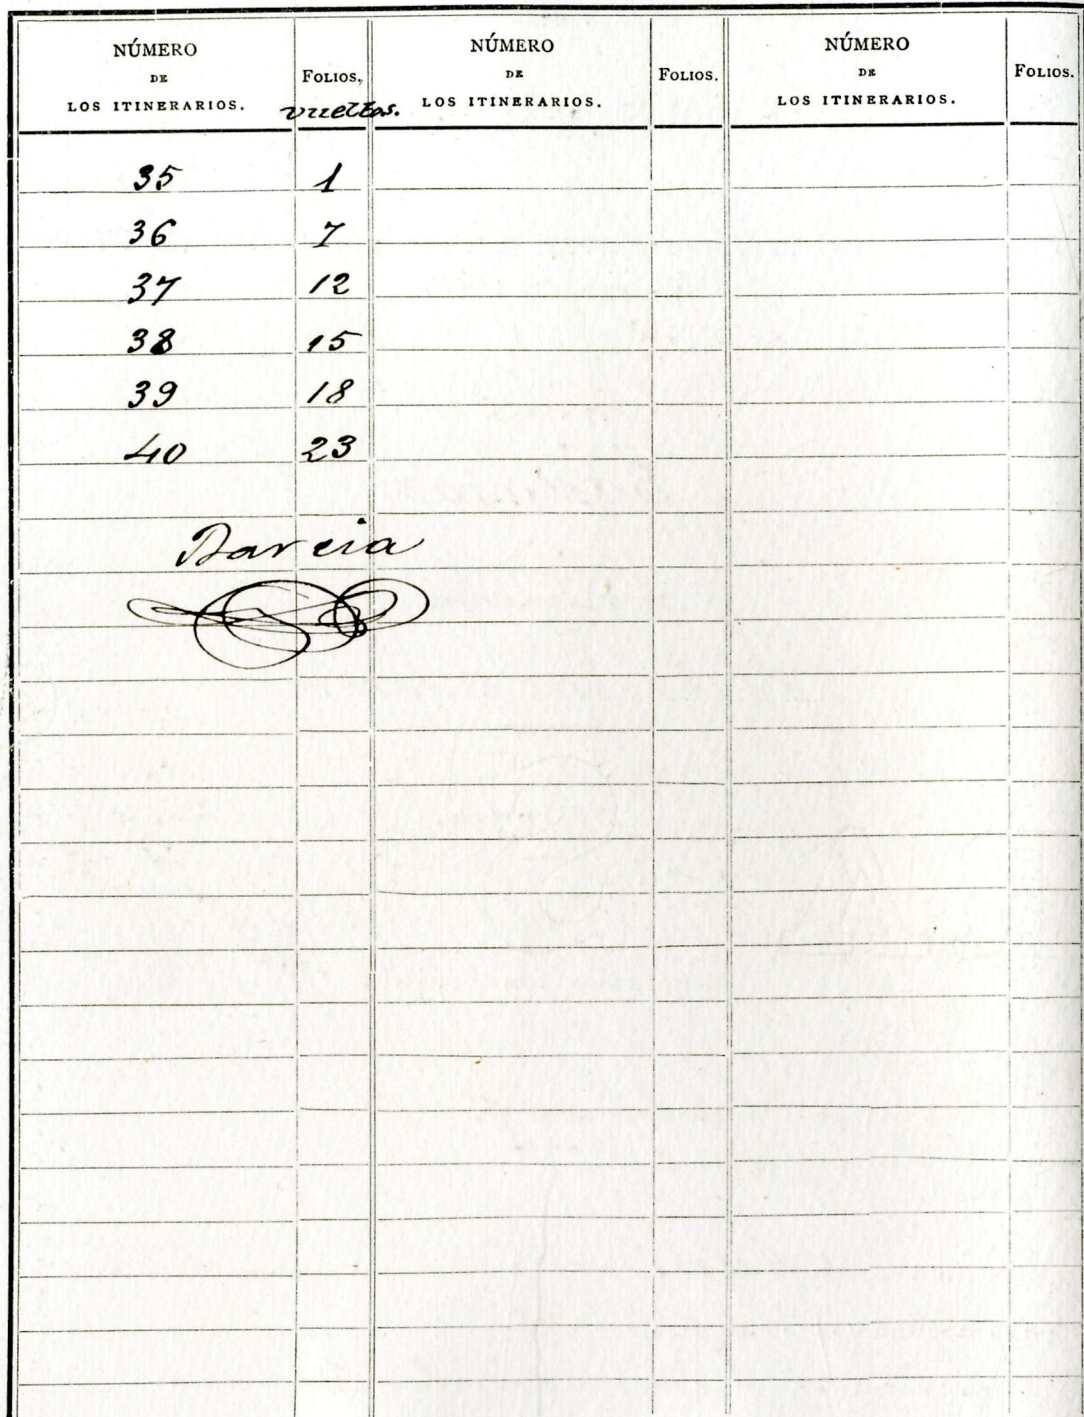 NÚMERO
DE
LOS ITINERARIOS.
FOLIOS.
vueltos.
NÚMERO
DE
LOS ITINERARIOS.
FOLIOS.
NÚMERO
DE
LOS ITINERARIOS.
FOLIOS.
35 1
36 7
37 12
38 15
39 18
40 23